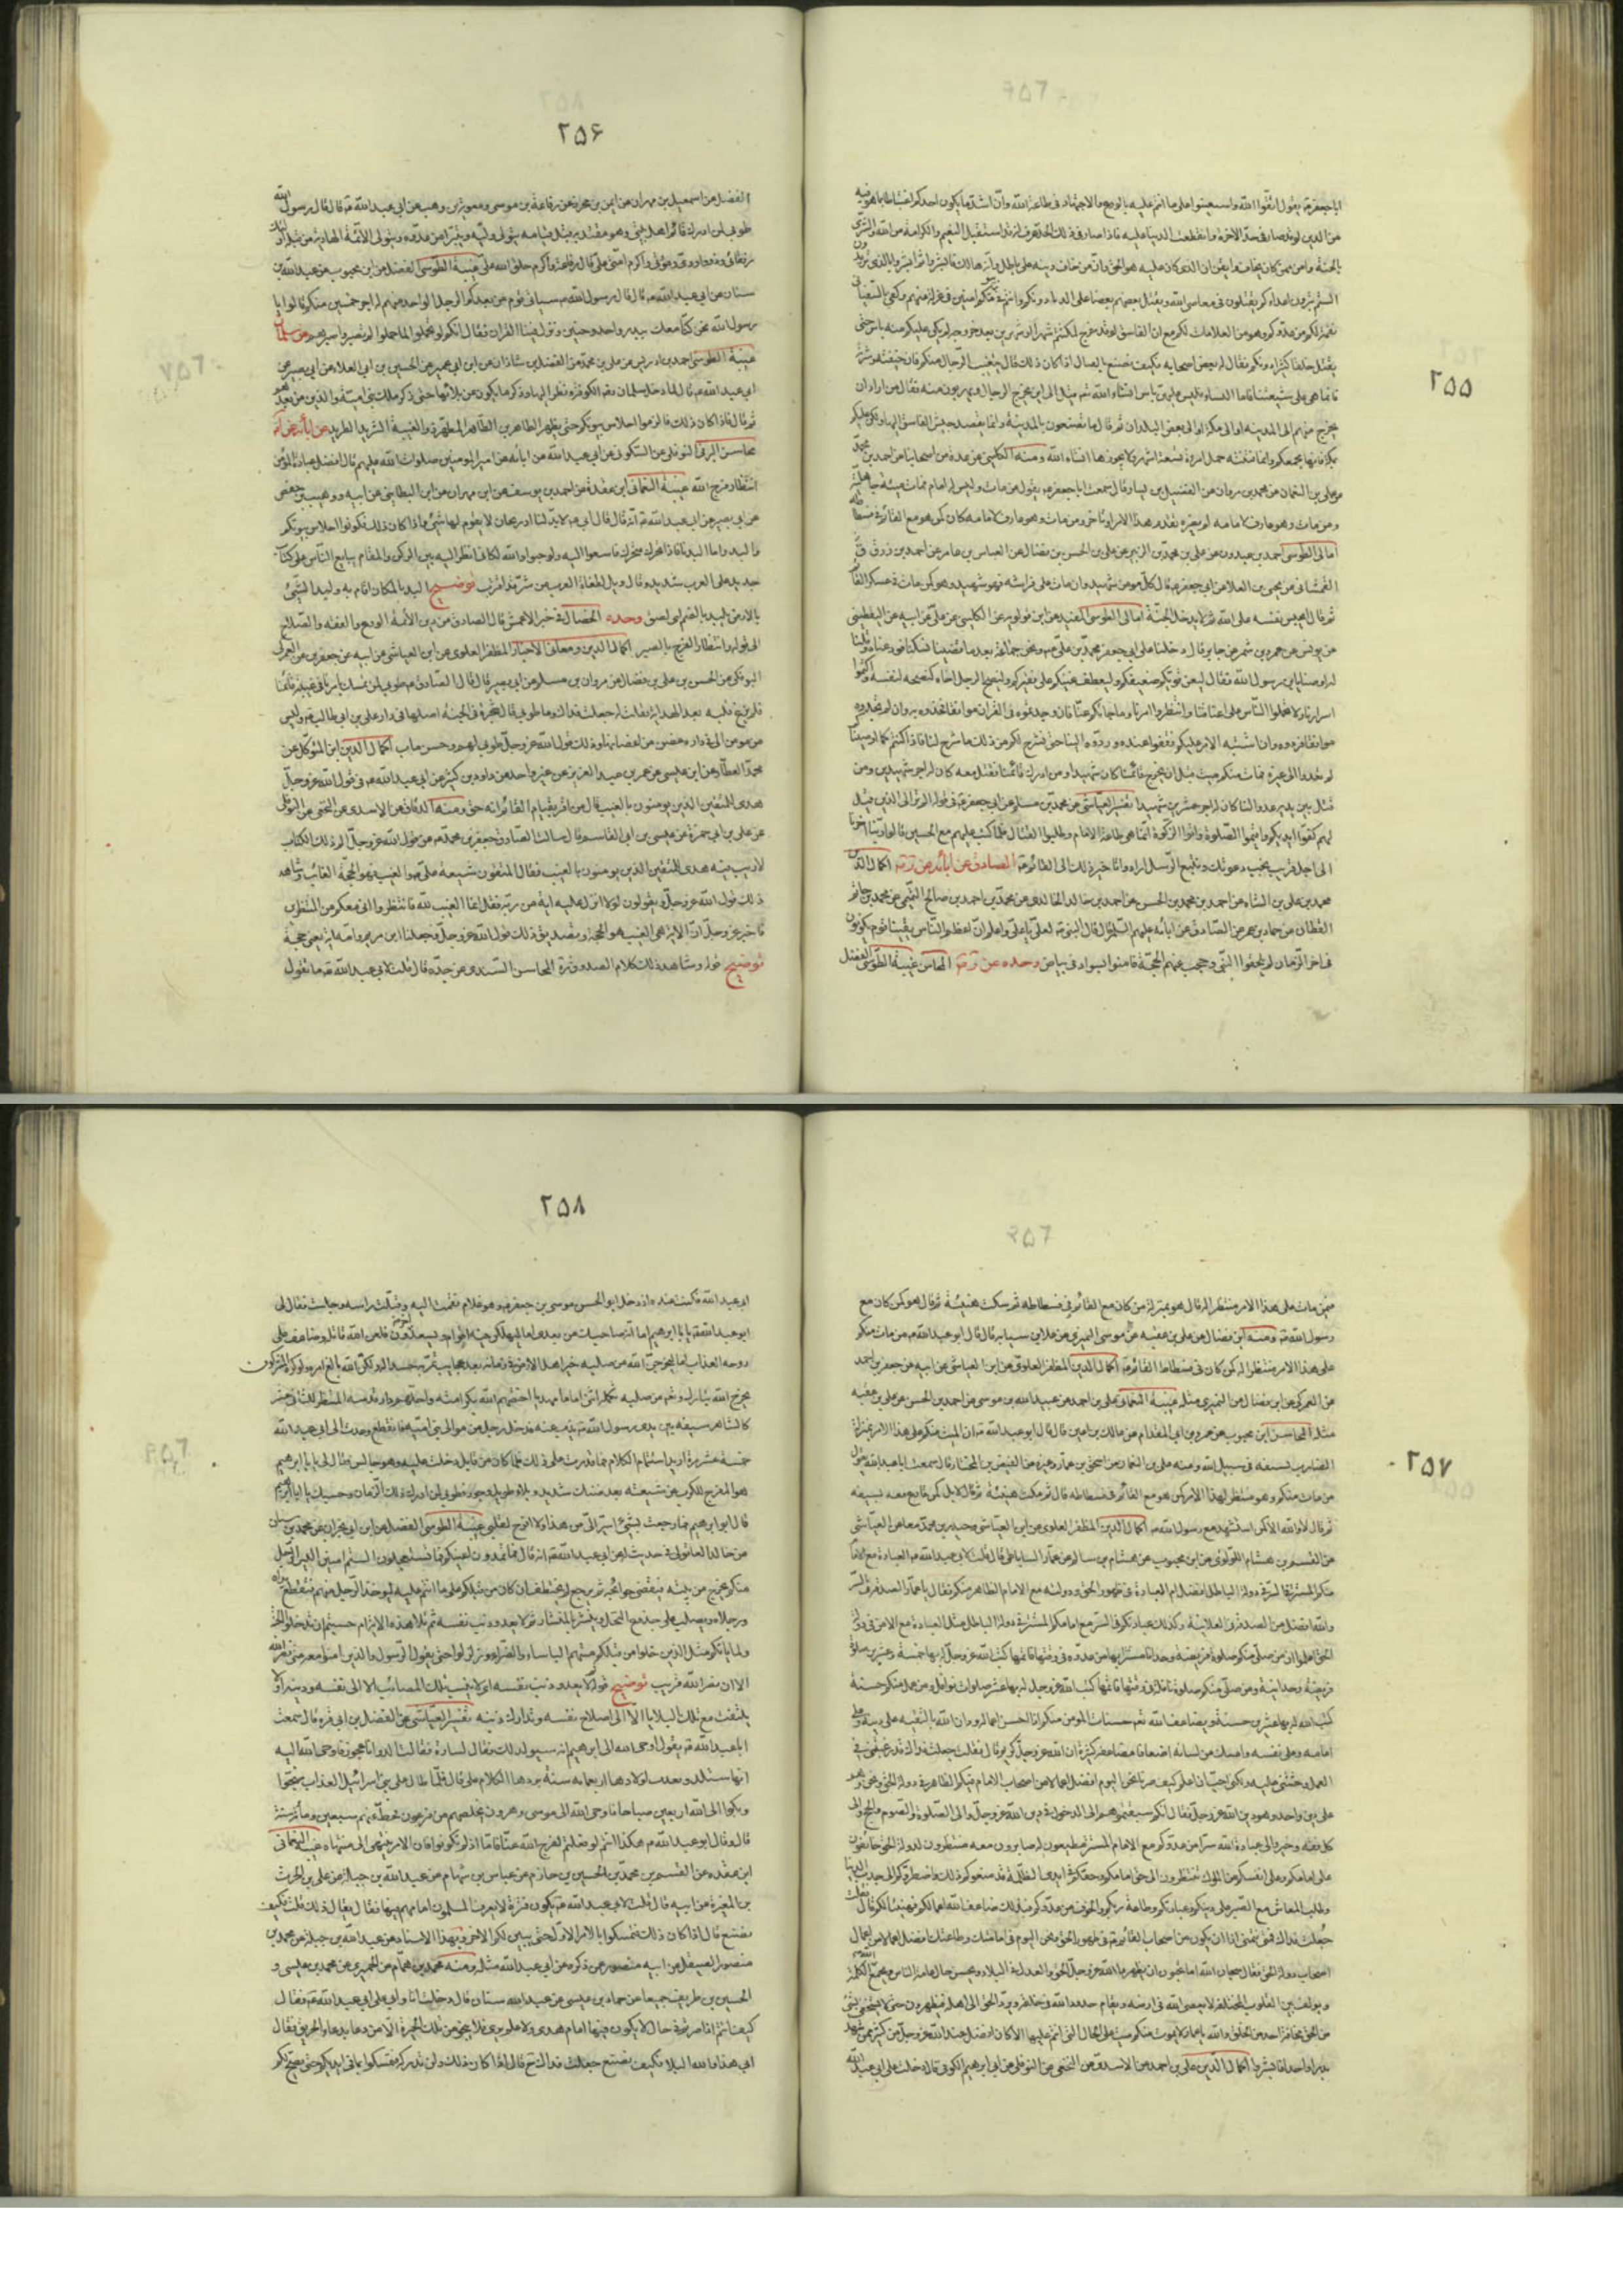 ۲۵۵
ابا جعفر ع يقول اتقوا الله واستعينوا على ما انتم عليه بالورع والاجتهاد فى طاعة الله وان اشد ما يكون احدكم اغتباطا بما هو فيه
من الدين لو قد صار فى حد الآخرة وانقطعت الدنيا عليه فاذا صار فى ذلك الحد عرف انه قد استقبل النعيم والكرامة من الله والبشرى
بالجنة وامن ممن كان يخاف وايقن ان الذى كان عليه هو الحق وان من خالف دينه على باطل وانه هالك فابشروا ثم ابشروا بالذى تريدون
الستم ترون اعداءكم يقتلون فى معاصى الله ويقتل بعضهم بعضا على الدنيا دونكم وانتم فى بيوتكم آمنين فى عزلة عنهم وكفى بالسفيانى
نقمة لكم من عدوكم وهو من العلامات لكم مع ان الفاسق لو قد خرج لمكثتم شهرا او شهرين بعد خروجه لم يكن عليكم منه باس حتى
يقتل خلقا كثيرا دونكم فقال له بعض اصحابه فكيف نصنع بالعيال اذا كان ذلك قال يتغيب الرجال منكم عنه فان خيفته وشرته
فانما هى على شيعتنا فاما النساء فليس عليهن باس انشاء الله تع قيل الى اين يخرج الرجال ويهربون منه فقال من اراد ان
يخرج منهم الى المدينة او الى مكة او الى بعض البلدان ثم قال ما تصنعون بالمدينة وانما يقصد جيش الفاسق اليها ولكن عليكم
بمكة فانها مجمعكم وانما فتنته حمل امرأة تسعة اشهر ولا يجوزها انشاء الله ومنه الكلينى عن عدة من اصحابنا عن احمد بن محمد
عن على بن النعمان عن محمد بن مروان عن الفضيل بن يسار قال سمعت ابا جعفر ع يقول من مات وليس له امام مات ميتة جاهلية
ومن مات وهو عارف لامامه لم يضره تقدم هذا الامر او تاخر ومن مات وهو عارف لامامه كان كمن هو مع القائم فى فسطاطه
امالى الطوسى احمد بن عبدون عن على بن محمد بن الزبير عن على بن الحسن بن فضال عن العباس بن عامر عن احمد بن رزق
الغمشانى عن يحيى بن العلا عن ابى جعفر ع قال كل مومن شهيد وان مات على فراشه فهو شهيد وهو كمن مات فى عسكر القائم
ثم قال ايحبس نفسه على الله ثم لا يدخل الجنة امالى الطوسى المفيد عن ابن قولويه عن الكلينى عن على عن ابيه عن اليقطينى
عن يونس عن عمرو بن شمر عن جابر قال دخلنا على ابى جعفر محمد بن على ع ونحن جماعة بعد ما قضينا نسكنا فودعناه وقلنا
له اوصنا يا بن رسول الله فقال ليعن قويكم ضعيفكم وليعطف غنيكم على فقيركم ولينصح الرجل اخاه كنصحه لنفسه واكتموا
اسرارنا ولا تحملوا الناس على اعناقنا وانظروا امرنا وما جاءكم عنا فان وجدتموه فى القران موافقا فخذوه به وان لم تجدوه
موافقا فردوه وان اشتبه الامر عليكم فقفوا عنده وردوه الينا حتى نشرح لكم من ذلك ما شرح لنا فاذا كنتم كما اوصيناكم
لم تعدوا الى غيره فمات منكم ميت قبل ان يخرج قائمنا كان شهيدا ومن ادرك قائمنا فقتل معه كان له اجر شهيدين ومن
قتل بين يديه عدوا لنا كان له اجر عشرين شهيدا تفسير العياشى عن محمد بن مسلم عن ابى جعفر ع فى قوله الم تر الى الذين قيل
لهم كفوا ايديكم واقيموا الصلوة واتوا الزكوة انما هى طاعة الامام وطلبوا القتال فلما كتب عليهم مع الحسين قالوا ربنا اخرتنا
الى اجل قريب نجب دعوتك ونتبع الرسل ارادوا تاخير ذلك الى القائم ع الصادق عن آبائه عن اكمال الدين
محمد بن على بن الشاه عن احمد بن محمد بن الحسن عن احمد بن خالد الخالدى عن محمد بن احمد بن صالح التميمى عن محمد بن حاتم
القطان عن حماد بن عمر عن الصادق عن آبائه عليهم السلم قال قال النبى ص لعلى يا على واعلم ان اعظم الناس يقينا قوم يكونون
فى آخر الزمان لم يلحقوا النبى وحجب عنهم الحجة فامنوا بسواد فى بياض وحده عن المحاسن غيبة الطوسى الفضل
۲۵۶
الفضل عن اسمعيل بن مهران عن ايمن بن محرز عن رفاعة بن موسى ومعوية بن وهب عن ابى عبد الله ع قال قال رسول الله
طوبى لمن ادرك قائم اهل بيتى وهو مقتد به قبل قيامه يتولى وليه ويتبرأ من عدوه ويتولى الائمة الهادية من قبله اولئك
رفقائى وذوو ودى ومودتى واكرم امتى على قال رفاعة واكرم خلق الله على غيبة الطوسى الفضل عن ابن محبوب عن عبد الله بن
سنان عن ابى عبد الله ع قال قال رسول الله ص سياتى قوم من بعدكم الرجل الواحد منهم له اجر خمسين منكم قالوا يا
رسول الله نحن كنا معك ببدر واحد وحنين ونزل فينا القران فقال انكم لو تحملوا لما حملوا لم تصبروا صبرهم
غيبة الطوسى احمد بن ادريس عن على بن محمد عن الفضل بن شاذان عن ابن ابى عمير عن الحسين بن ابى العلاء عن ابى بصير عن
ابى عبد الله ع قال لما دخل سلمان رض الكوفة ونظر اليها وذكر ما يكون من بلائها حتى ذكر ملك بنى امية والذين من بعدهم
ثم قال فاذا كان ذلك فالزموا احلاس بيوتكم حتى يظهر الطاهر بن الطاهر المطهر ذو الغيبة الشريد الطريد
محاسن البرقى النوفلى عن السكونى عن ابى عبد الله عن ابائه عن امير المومنين صلوات الله عليهم قال افضل عبادة المؤمن
انتظار فرج الله غيبة النعمانى ابن عقدة عن احمد بن يوسف عن ابن مهران عن ابن البطاينى عن ابيه ووهيب بن حفص
عن ابى بصير عن ابى عبد الله ع انه قال قال ابى ع لابد لنا من اذربيجان لا يقوم لها شئ فاذا كان ذلك فكونوا احلاس بيوتكم
والبدوا ما البدنا فاذا تحرك متحرك فاسعوا اليه ولو حبوا والله لكانى انظر اليه بين الركن والمقام يبايع الناس على كتاب
جديد على العرب شديد وقال ويل لطغاة العرب من شر قد اقترب توضيح البد بالمكان اقام به ولبد الشئ
بالارض يلبد بالضم اى لصق وحده الخصال فى خبر الاعمش قال الصادق من دين الائمة الورع والعفة والصلاح
الى قوله وانتظار الفرج بالصبر اكمال الدين ومعانى الاخبار المظفر العلوى عن ابن العياشى عن ابيه عن جعفر بن عن العمركى
البوفكى عن الحسن بن على بن فضال عن مروان بن مسلم عن ابى بصير قال قال الصادق ع طوبى لمن تمسك بامرنا فى غيبة قائمنا
فلم يزغ قلبه بعد الهداية فقلت له جعلت فداك وما طوبى قال شجرة فى الجنة اصلها فى دار على بن ابى طالب ع وليس
من مومن الا وفى داره غصن من اغصانها وذلك قول الله عز وجل طوبى لهم وحسن مآب اكمال الدين ابن المتوكل عن
محمد العطار عن ابن عيسى عن عمر بن عبد العزيز عن غير واحد عن داود بن كثير عن ابى عبد الله ع فى قول الله عز وجل
هدى للمتقين الذين يومنون بالغيب قال من اقر بقيام القائم انه حق ومنه الدقاق عن الاسدى عن النخعى عن النوفلى
عن على بن ابى حمزة عن يحيى بن ابى القاسم قال سالت الصادق جعفر بن محمد ع عن قول الله عز وجل الم ذلك الكتاب
لا ريب فيه هدى للمتقين الذين يومنون بالغيب فقال المتقون شيعة على ع والغيب فهو الحجة الغائب وشاهد
ذلك قول الله عز وجل ويقولون لولا انزل عليه آية من ربه فقل انما الغيب لله فانتظروا انى معكم من المنتظرين
فاخبر عز وجل ان الاية هى الغيب هو الحجة وتصديق ذلك قول الله عز وجل وجعلنا ابن مريم وامه آية يعنى حجة
توضيح قوله وشاهد ذلك كلام الصدوق ره المحاسن السندى عن جده قال قلت لابى عبد الله ع ما تقول
۲۵۷
فيمن مات على هذا الامر منتظرا له قال هو بمنزلة من كان مع القائم فى فسطاطه ثم سكت هنيئة ثم قال هو كمن كان مع
رسول الله ص ومنه ابن فضال عن على بن عقبه عن موسى النميرى عن علا بن سيابه قال قال ابو عبد الله ع من مات منكم
على هذا الامر منتظرا له كمن كان فى فسطاط القائم ع اكمال الدين المظفر العلوى عن ابن العياشى عن ابيه عن جعفر بن احمد
عن العمركى عن ابن فضال عن النميرى مثله غيبة النعمانى على بن احمد عن عبيد الله بن موسى عن احمد بن الحسن عن على بن عقبه
مثله المحاسن ابن محبوب عن عمرو بن ابى المقدام عن مالك بن اعين قال قال ابو عبد الله ع ان الميت منكم على هذا الامر بمنزلة
الضارب بسيفه فى سبيل الله ومنه على بن النعمان عن اسحق بن عمار وغيره عن الفيض بن المختار قال سمعت ابا عبد الله ع يقول
من مات منكم وهو منتظر لهذا الامر كمن هو مع القائم فى فسطاطه قال ثم مكث هنيئة ثم قال لا بل كمن قارع معه بسيفه
ثم قال لا والله الا كمن استشهد مع رسول الله ص اكمال الدين المظفر العلوى عن ابن العياشى وحيدر بن محمد معا عن العياشى
عن القسم بن هشام اللؤلوى عن ابن محبوب عن هشام بن سالم عن عمار الساباطى قال قلت لابى عبد الله ع العبادة مع الامام
منكم المستتر فى السر فى دولة الباطل افضل ام العبادة فى ظهور الحق ودولته مع الامام الظاهر منكم فقال يا عمار الصدقة فى السر
والله افضل من الصدقة فى العلانية وكذلك عبادتكم فى السر مع امامكم المستتر فى دولة الباطل مثل العبادة مع الامن فى دولة
الحق اعلموا ان من صلى منكم صلوة فريضة وحدانا مستترا بها من عدوه فى وقتها فاتمها كتب الله عز وجل له بها خمسة وعشرين صلوة
فريضة وحدانية ومن صلى منكم صلوة نافلة فى وقتها فاتمها كتب الله عز وجل له بها عشر صلوات نوافل ومن عمل منكم حسنة
كتب الله له بها عشرين حسنة ويضاعف الله تع حسنات المومن منكم اذا احسن اعماله ودان الله بالتقية على دينه وعلى
امامه وعلى نفسه وامسك من لسانه اضعافا مضاعفة كثيرة ان الله عز وجل كريم قال فقلت جعلت فداك قد رغبتنى فى
العمل وحثثتنى عليه ولكنى احب ان اعلم كيف صرنا نحن اليوم افضل اعمالا من اصحاب الامام منكم الظاهر فى دولة الحق ونحن وهم
على دين واحد وهو دين الله عز وجل فقال انكم سبقتموهم الى الدخول فى دين الله عز وجل والى الصلوة والصوم والحج والى
كل فقه وخير والى عبادة الله سرا من عدوكم مع الامام المستتر مطيعون له صابرون معه منتظرون لدولة الحق خائفون
على امامكم وعلى انفسكم من الملوك تنظرون الى حق امامكم وحقكم فى ايدى الظلمة قد منعوكم ذلك واضطروكم الى جذب الدنيا
وطلب المعاش مع الصبر على دينكم وعبادتكم وطاعة ربكم والخوف من عدوكم فبذلك ضاعف الله اعمالكم فهنيئا لكم قال فقلت
جعلت فداك فما نتمنى اذا ان نكون من اصحاب القائم ع فى ظهور الحق ونحن اليوم فى امامتك وطاعتك افضل اعمالا من اعمال
اصحاب دولة الحق فقال سبحان الله اما تحبون ان يظهر الله عز وجل الحق والعدل فى البلاد ويحسن حال عامة الناس ويجمع الله الكلمة
ويولف بين القلوب المختلفة ولا يعصى الله فى ارضه ويقام حدود الله فى خلقه ويرد الحق الى اهله فيظهرون حتى لا يستخفى بشئ
من الحق مخافة احد من الخلق والله يا عمار لا يموت منكم ميت على الحال التى انتم عليها الا كان افضل عند الله عز وجل من كثير ممن شهد
بدرا واحدا فابشروا اكمال الدين على بن احمد عن الاسدى عن النخعى عن النوفلى عن ابى ابراهيم الكوفى قال دخلت على ابى عبد الله
۲۵۸
ابى عبد الله ع فكنت عنده اذ دخل ابو الحسن موسى بن جعفر ع وهو غلام فقمت اليه وقبلت راسه وجلست فقال لى
ابو عبد الله ع يا با ابراهيم اما انه صاحبك من بعدى اما ليهلكن فيه اقوام ويسعد آخرون فلعن الله قاتله وضاعف على
روحه العذاب اما ليخرجن الله من صلبه خير اهل الارض فى زمانه بعد عجائب تمر به حسدا له ولكن الله بالغ امره ولو كره المشركون
يخرج الله تبارك وتع من صلبه تكملة اثنى عشر اماما مهديا اختصهم الله بكرامته واحلهم دار قدسه المنتظر للثانى عشر
كالشاهر سيفه بين يدى رسول الله ص يذب عنه فدخل رجل من موالى بنى امية فانقطع الكلام وعدت الى ابى عبد الله
خمسة عشر مرة اريد استتمام الكلام فما قدرت على ذلك فلما كان من قابل دخلت عليه وهو جالس فقال لى يا با ابراهيم
هو المفرج للكرب عن شيعته بعد ضنك شديد وبلاء طويل وجور فطوبى لمن ادرك ذلك الزمان وحسبك يا با ابراهيم
قال ابو ابراهيم فما رجعت بشئ اسر الى من هذا ولا افرح لقلبى غيبة الطوسى الفضل عن ابن ابى نجران عن محمد بن سنان
عن خالد العاقولى فى حديث له عن ابى عبد الله ع انه قال فما تمدون اعينكم فما تستعجلون الستم آمنين اليس الرجل
منكم يخرج من بيته فيقضى حوائجه ثم يرجع لم يختطف ان كان من قبلكم على ما انتم عليه ليؤخذ الرجل منهم فتقطع يداه
ورجلاه ويصلب على جذع النخل وينشر بالمنشار ثم لا يعدو ذنب نفسه ثم تلا هذه الاية ام حسبتم ان تدخلوا الجنة
ولما ياتكم مثل الذين خلوا من قبلكم مستهم الباساء والضراء وزلزلوا حتى يقول الرسول والذين امنوا معه متى نصر الله
الا ان نصر الله قريب توضيح قوله لا يعدو ذنب نفسه اى لا ينسب تلك المصائب الا الى نفسه وذنبه او لا
يلتفت مع تلك البلايا الا الى اصلاح نفسه وتدارك ذنبه تفسير العياشى عن الفضل بن ابى قره قال سمعت
ابا عبد الله ع يقول اوحى الله الى ابراهيم انه سيولد لك فقال لسارة فقالت ءالد وانا عجوز فاوحى الله اليه
انها ستلد ويعذب اولادها اربعمائه سنة بردها الكلام على قال فلما طال على بنى اسرائيل العذاب ضجوا
وبكوا الى الله اربعين صباحا فاوحى الله الى موسى وهرون يخلصهم من فرعون فحط عنهم سبعين ومائة سنة
قال وقال ابو عبد الله ع هكذا انتم لو فعلتم لفرج الله عنا فاما اذ لم تكونوا فان الامر ينتهى الى منتهاه غيبة النعمانى
ابن عقده عن القسم بن محمد بن الحسين بن حازم عن عباس بن هشام عن عبد الله بن جبلة عن على بن الحرث
بن المغيرة عن ابيه قال قلت لابى عبد الله ع يكون فترة لا يعرف المسلمون امامهم فيها فقال يقال ذلك قلت فكيف
نصنع قال اذا كان ذلك فتمسكوا بالامر الاول حتى يبين لكم الآخر وبهذا الاسناد عن عبد الله بن جبلة عن محمد بن
منصور الصيقل عن ابيه منصور عن ذكره عن ابى عبد الله مثله ومنه محمد بن همام عن الحميرى عن محمد بن عيسى و
الحسين بن طريف جميعا عن حماد بن عيسى عن عبد الله سنان قال دخلت انا وابى على ابى عبد الله ع فقال
كيف انتم اذا صرتم فى حال لا يكون فيها امام هدى ولا علم يرى فلا ينجو من تلك الحيرة الا من دعا بدعاء الحريق فقال
ابى هذا والله البلاء فكيف نصنع جعلت فداك ح قال اذا كان ذلك ولن تدركه فتمسكوا بما فى ايديكم حتى يصح لكم